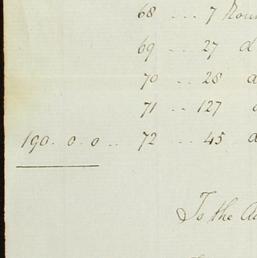 68 ... 7
69 ... 27 d
70 .. 28 d
71 ... 127
190. 0. 0 .. 72 ... 45 d
To the